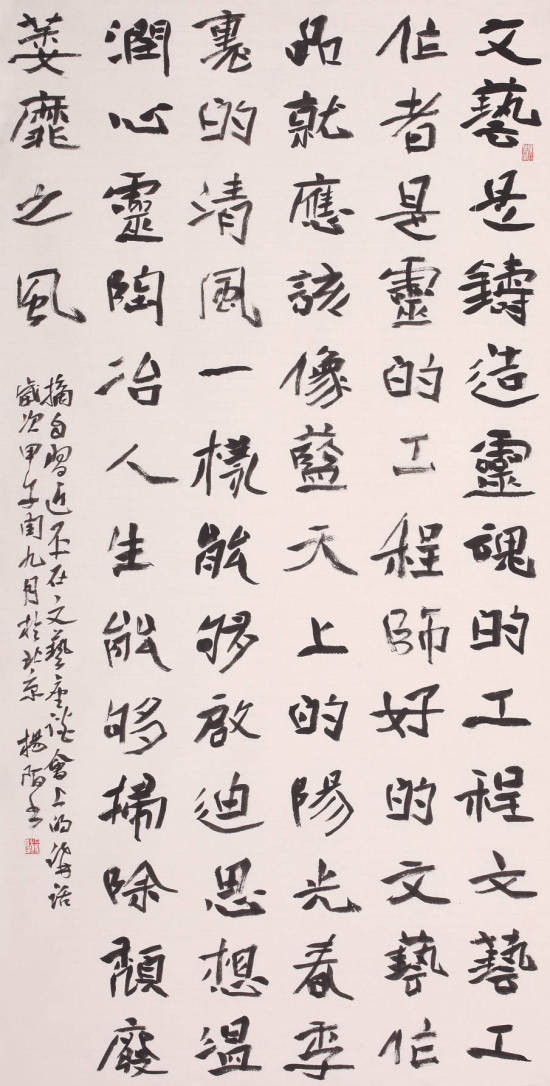 文藝是鑄造靈魂的工程文藝工
作者是靈的工程師好的文藝作
品就應該像藍天上的陽光春季
裏的清風一樣能够啟迪思想溫
潤心靈陶冶人生能够掃除頹廢
萎靡之風
摘自習近平在文藝座談會上的講话
歲次甲午閏九月於北京 楊